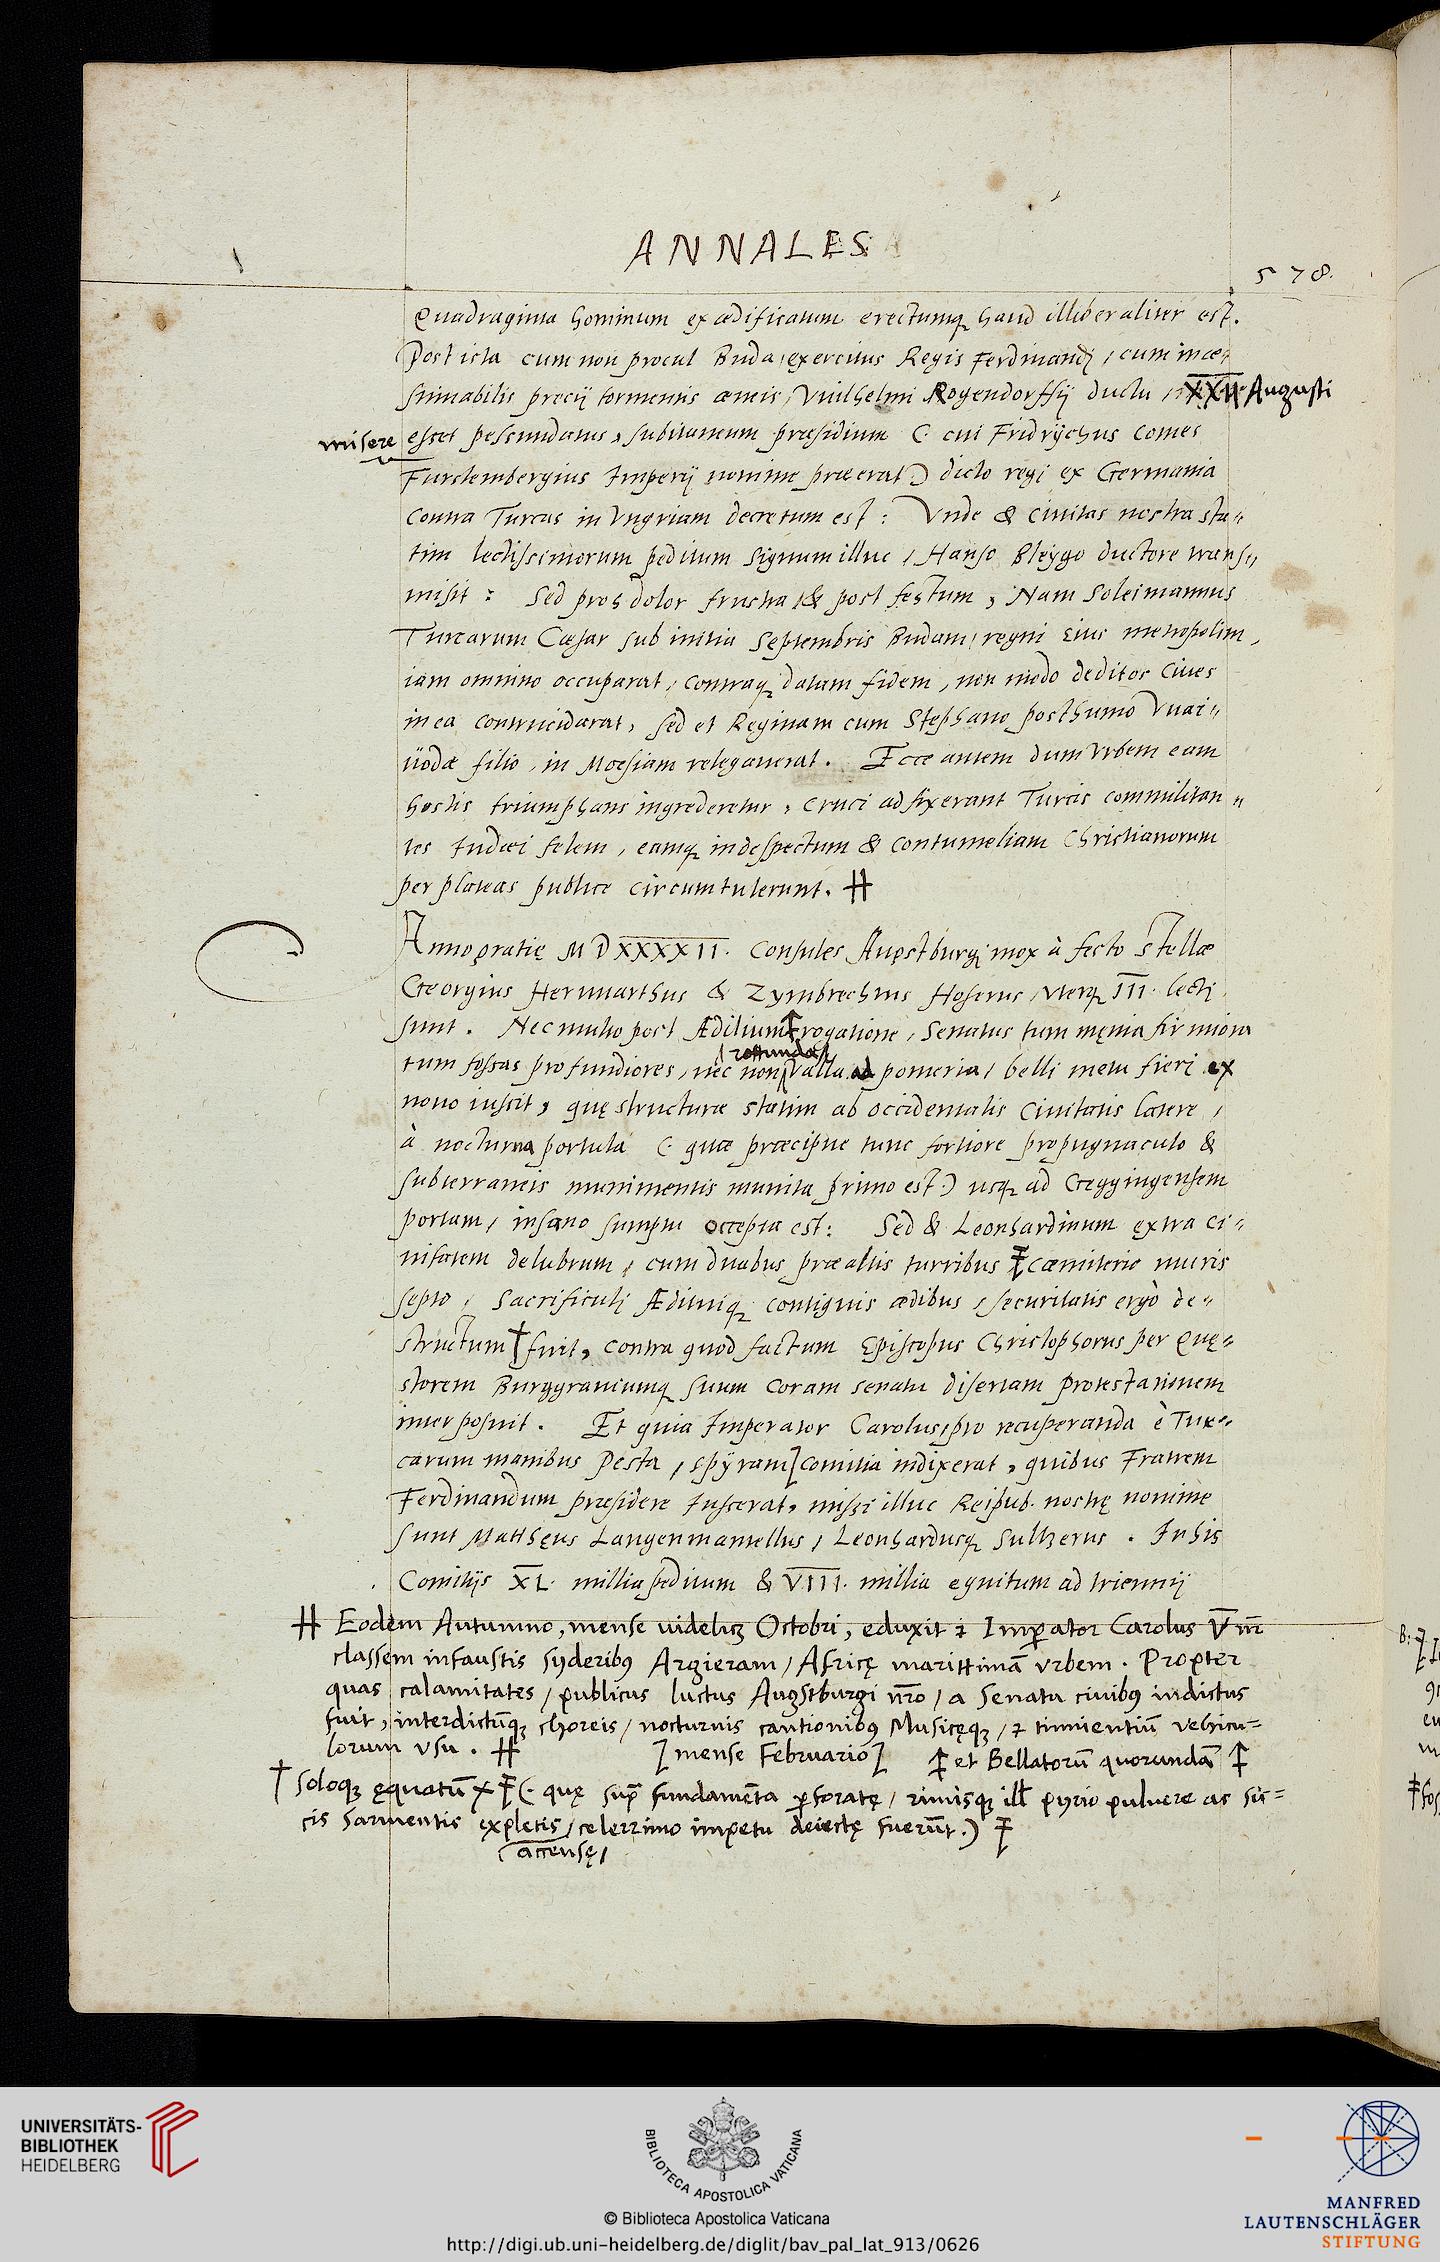 ANNALES
578.
Quadraginta hominum exædificatum erectumq̨ haud illiberaliter est.
Post ista cum non procul Buda, exercitus Regis Ferdinandi, cum inæ-
stimabilis precij tormentis æneis, Vuilhelmi Rogendorffij ductu, XXII Augusti
misere esset pessundatus, subitaneum præsidium (. cui Fridrychus Comes
Furstembergius Imperij nomine præerat) dicto regi ex Germania
contra Turcas in Vngriam decretum est: Vnde & ciuitas nostra sta-
tim lectissimorum peditum signum illuc, Hanso Bleygo ductore trans-
misit: Sed proh dolor frustra, & post festum, Nam Soleimannus
Turcarum Cæsar sub initia Septembris Budam, regni eius metropolim,
iam omnino occuparat, contraq̨ datam fidem, non modo deditos Ciues
in ea contrucidarat, sed et Reginam cum Stephano posthumo Vuai-
uodæ filio, in Moesiam relegauerat. Ecce autem dum Vrbem eam
hostis triumphans ingrederetur, cruci adfixerant Turcis commilitan-
tes Iudæi felem, eamq̨ in despectum & contumeliam Christianorum
per plateas publice circumtulerunt. #
Anno gratię MDXXXXII. Consules Augstburgi mox à festo Stellæ
Georgius Heruuarthus & Zymbrechtus Hoserus, uterq̨ III. lecti
sunt. Nec multo post Ædilium rogatione, Senatus tum męnia firmiora
rottunda
tum fossas profundiores, nec non Valla ad pomeria, belli metu fieri ex
nouo iussit, quę structuræ statim ab occidentalis Ciuitatis latere,
à nocturna portula (. quæ præcipue tunc fortiore propugnaculo &
subterraneis munimentis munita primo est.) usq̨ ad Geggingensem
portam, insano sumptu occepta est: Sed & Leonhardinum extra ci-
uitatem delubrum, cum duabus præaltis turribus ‡ cæmiterio muris
septo, Sacrificuli Æditniq̨ contiguis ædibus, securitatis ergò de-
structum † fuit, contra quod factum Episcopus Christophorus per Quę-
storem Burggrauiumq̨ suum coram senatu disertam protestationem
interposuit. Et quia Imperator Carolus, pro recuperanda è Tur-
carum manibus Pesta, Spyram ] comitia indixerat, quibus Fratrem
Ferdinandum præsidere iusserat, missi illuc Reipub. nostrę nomine
sunt Matthęus Langenmantellus, Leonhardusq̨ Sultzerus. In his
Comitijs XL. millia peditum & VIII. millia equitum ad triennij
# Eodem Autumno, mense uidelicꝫ Octobri, eduxit ⁊ Imperator Carolus V nr̄
classem infaustis syderibꝰ Argieram, Africę marittimā vrbem. Propter
quas calamitates, publicus luctus Augstburgi nr̄o, a Senatu ciuibꝰ indictus
fuit, interdictūqꝫ choreis, nocturnis cantionibꝰ Musicęqꝫ, ⁊ tinnientiū vehicu=
lorum vsu. # [mense Februario] ‡ et Bellatorū quorundā ‡
† soloqꝫ ęquatū ‡ (. quę sup̄ fundamēta ꝑforatę, rimisqꝫ ill̄ pyrio puluere ac sic=
cis sarmentis expletis, celerrimo impetu deiectę fuerūt.) ‡
accensę,
UNIVERSITÄTS-
BIBLIOTHEK
HEIDELBERG
BIBLIOTECA APOSTOLICA VATICANA
© Biblioteca Apostolica Vaticana
http://digi.ub.uni-heidelberg.de/diglit/bav_pal_lat_913/0626
MANFRED
LAUTENSCHLÄGER
STIFTUNG